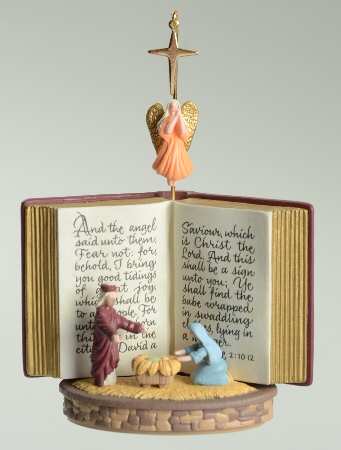 And the angel
said unto them,
Fear not: for,
behold, I bring
you good tidings
of great joy,
which shall be
to people. For
unto born
this in the
city David a
Saviour, which
is Christ the
Lord. And this
shall be a sign
unto you; Ye
shall find the
babe wrapped
in swaddling
lying in
a
2:10-12